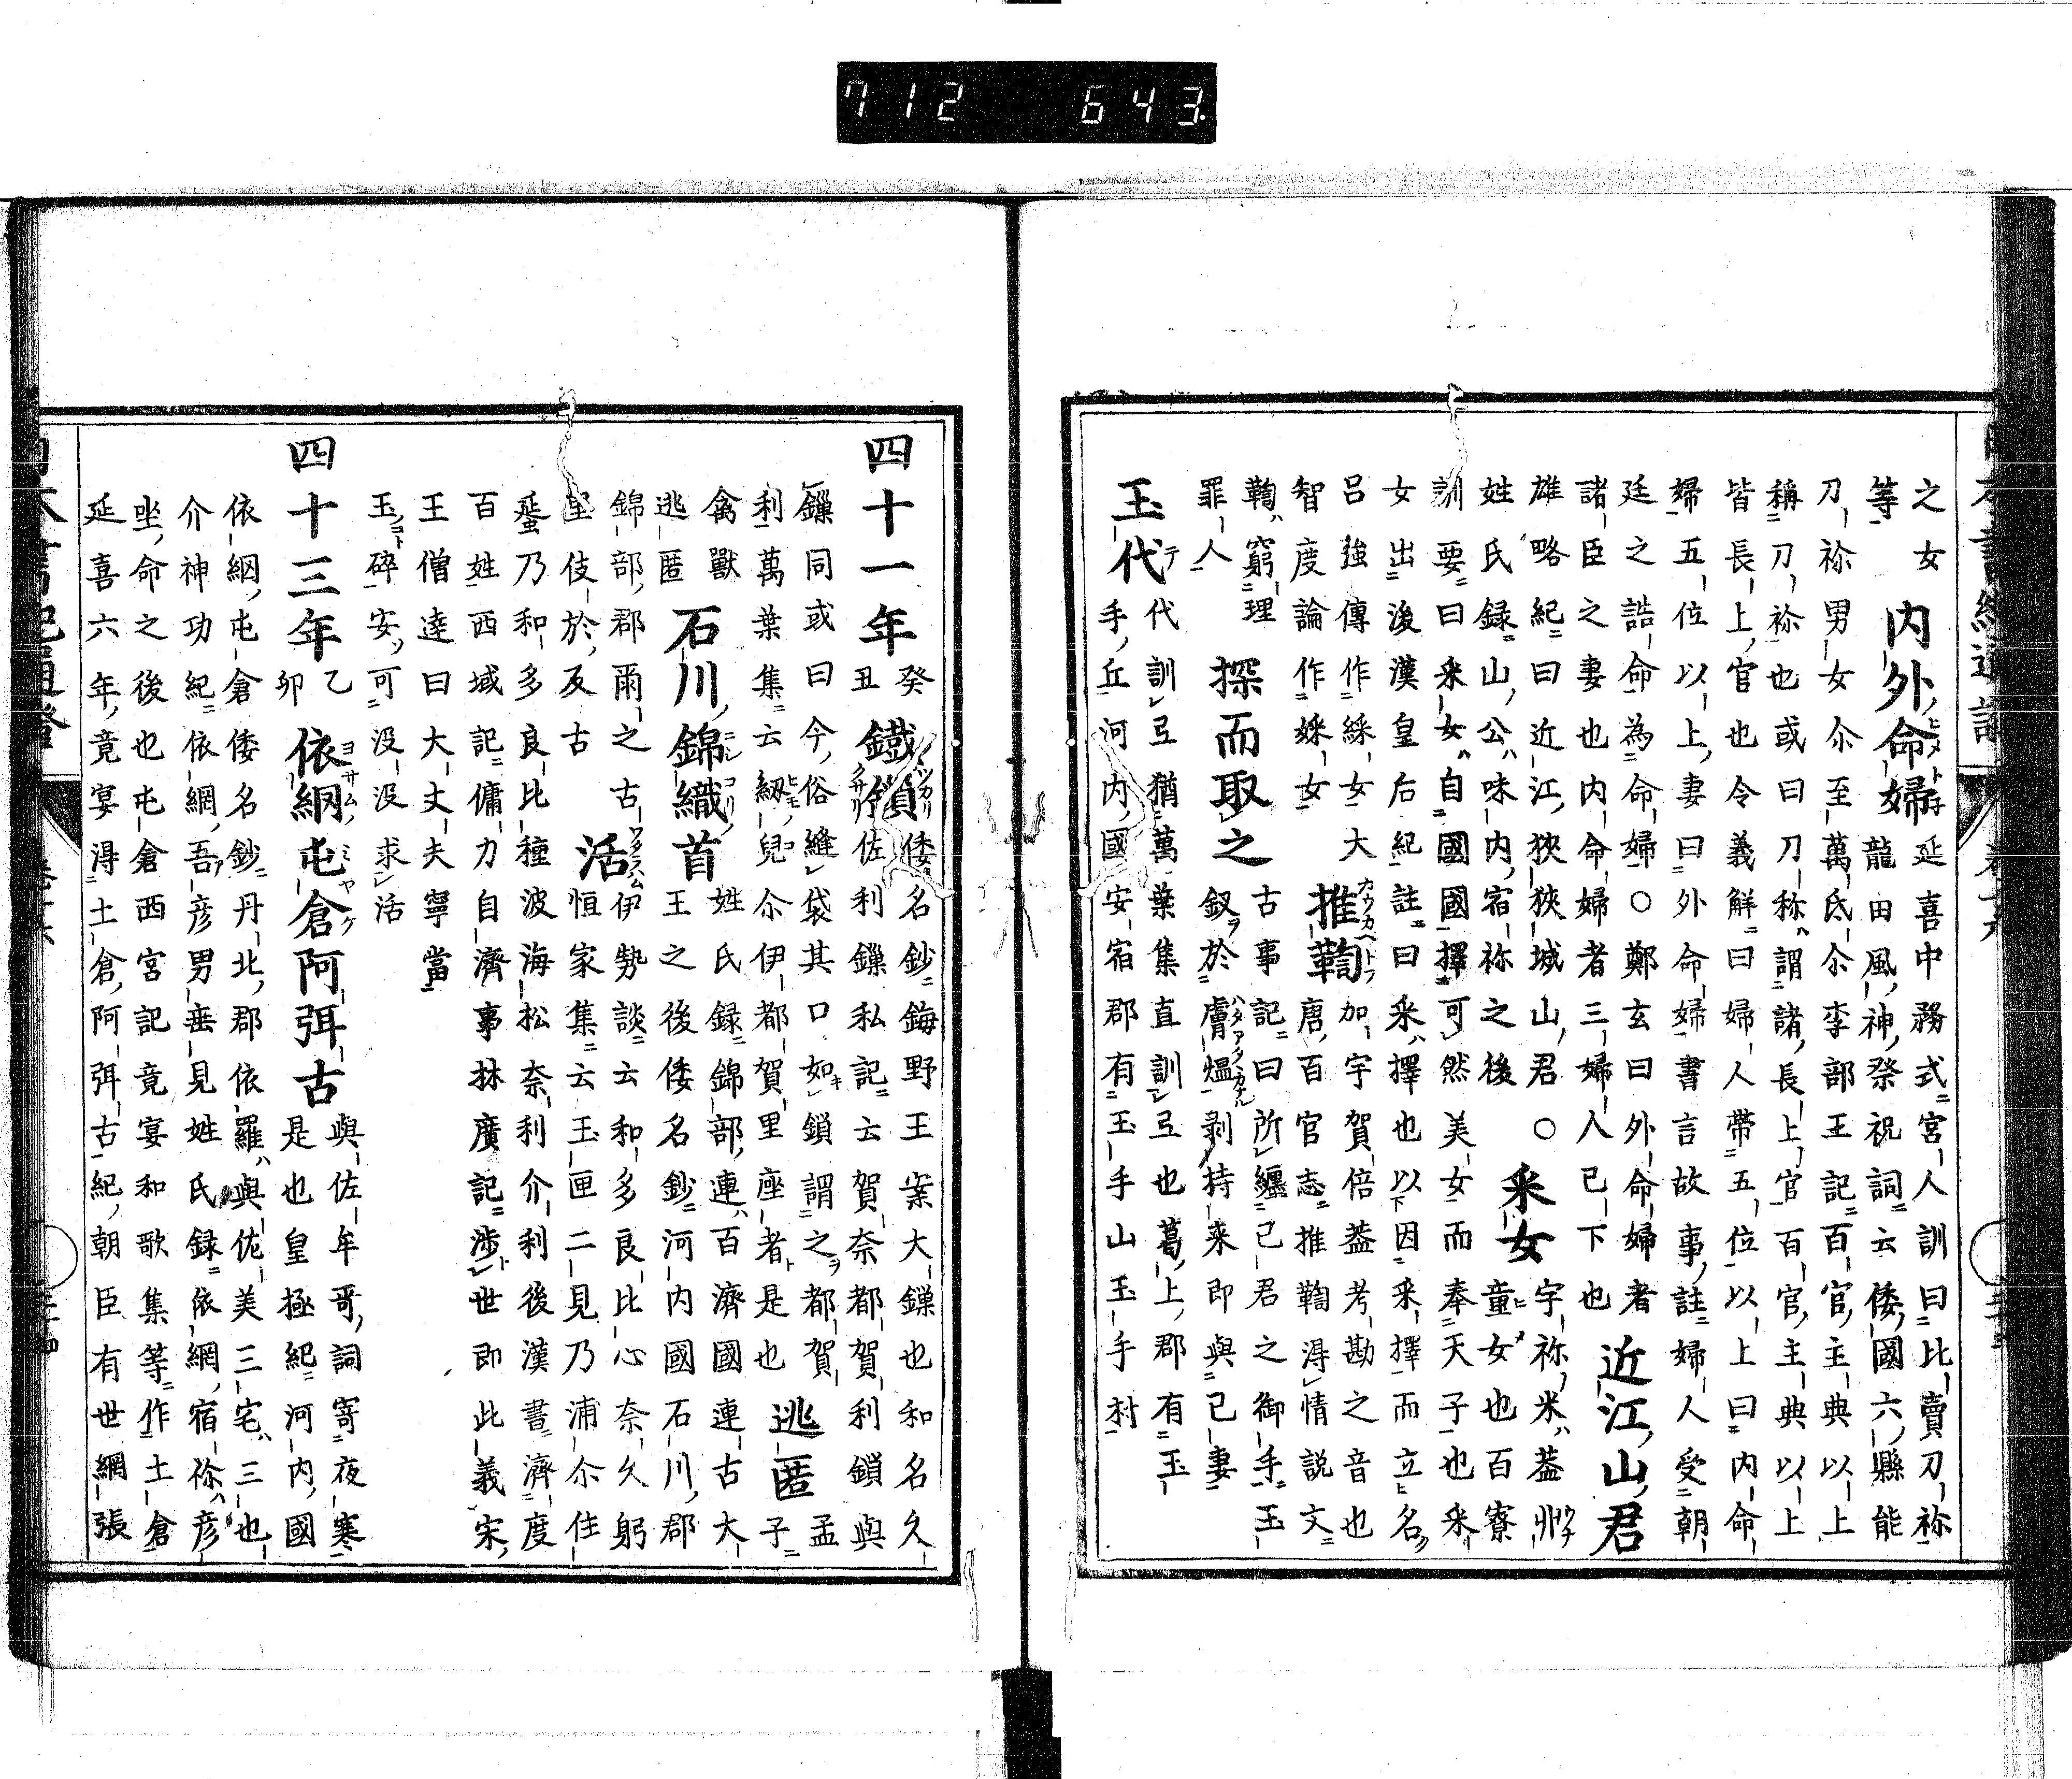 712 643
之女 内外命婦 延喜中務式宮人訓曰比賣刀祢
等 龍田風神祭祝詞云倭國六縣能
刀祢男女尒至萬氐尒李部王記百官主典以上
稱刀祢也或曰刀称謂諸長上官百官主典以上
皆長上官也令義解曰婦人帶五位以上曰内命
婦五位以上妻曰外命婦書言故事註婦人受朝
廷之誥命為命婦○鄭玄曰外命婦者
諸臣之妻也内命婦者三婦人已下也 近江山君
雄略紀曰近江狹狹城山君○
姓氏録山公味内宿祢之後 采女 字祢米葢
童女也百寮
訓要曰采女自國國擇可然美女而奉天子也采
女出後漢皇后紀註曰采擇也以因采擇而立名
呂強傳作綵女大
智度論作婇女 推鞫 加宇賀倍葢考勘之音也
唐百官志推鞫得情説文
鞫窮理
罪人 探而取之 古事記曰所纏己君之御手玉
釼於膚煴剥持来即與己妻
玉代 代訓弖猶萬葉集直訓弖也葛上郡有玉
手丘河内國安宿郡有玉手山玉手村
四十一年 癸丑 鐵鎖 倭名鈔鋂野王案大鏁也和名久
佐利鏁私記云賀奈都賀利鎖與
鏁同或曰今俗縫袋其口如鎖謂之都賀
利萬葉集云紉兒尒伊都賀里座者是也 逃匿 孟
子
禽獸
逃匿 石川錦織首 姓氏録錦部連百濟國連古大
王之後倭名鈔河内國石川郡
錦部郡爾之古
里伎於反古 活 伊勢談云和多良比心奈久躬
恒家集云玉匣二見乃浦尒住
蜑乃和多良比種波海松奈利介利後漢書濟度
百姓西域記傭力自濟事林廣記渉世即此義宋
王僧達曰大丈夫寧當
玉碎安可没没求活
四十三年 乙卯 依網屯倉阿弭古 與佐牟哥詞寄夜寒
是也皇極紀河内國
依網屯倉倭名鈔丹北郡依羅與佐美三宅三也
介神功紀依網吾彦男垂見姓氏録依網宿祢彦
坐命之後也屯倉西宮記竟宴和歌集等作土倉
延喜六年竟宴得土倉阿弭古紀朝臣有世網張